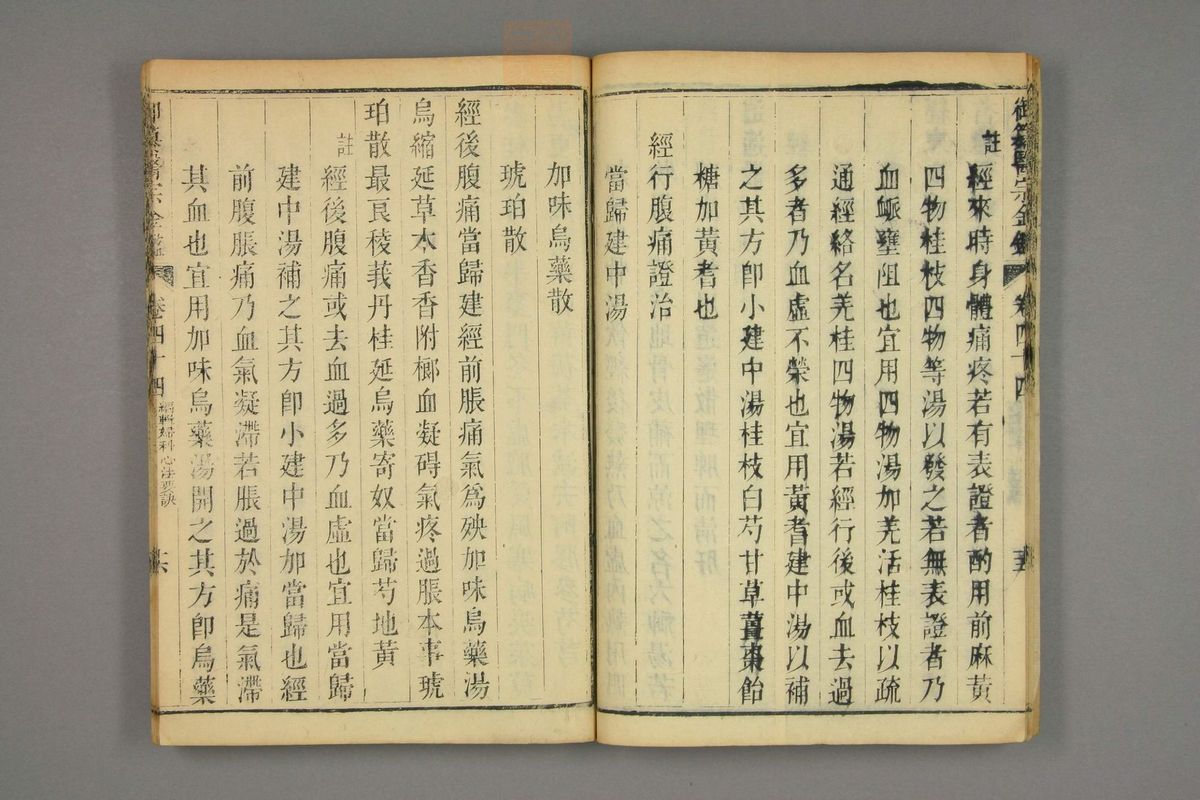 御纂醫宗金鑑 卷四十四 五
註
經來時身體痛疼若有表證者酌用前麻黃
四物桂枝四物等湯以發之若無表證者乃
血脈壅阻也宜用四物湯加羌活桂枝以疏
通經絡名羌桂四物湯若經行後或血去過
多者乃血虛不榮也宜用黃耆建中湯以補
之其方卽小建中湯桂枝白芍甘草薑棗飴
糖加黃耆也
經行腹痛證治
當歸建中湯
加味烏藥散
琥珀散
經後腹痛當歸建經前脹痛氣爲殃加味烏藥湯
烏縮延草木香香附榔血凝碍氣疼過脹本事琥
珀散最良稜莪丹桂延烏藥寄奴當歸芍地黃
註
經後腹痛或去血過多乃血虛也宜用當歸
建中湯補之其方卽小建中湯加當歸也經
前腹脹痛乃血氣凝滯若脹過於痛是氣滯
其血也宜用加味烏藥湯開之其方卽烏藥
御纂醫宗金鑑 卷四十四 編輯婦科心法要訣 六